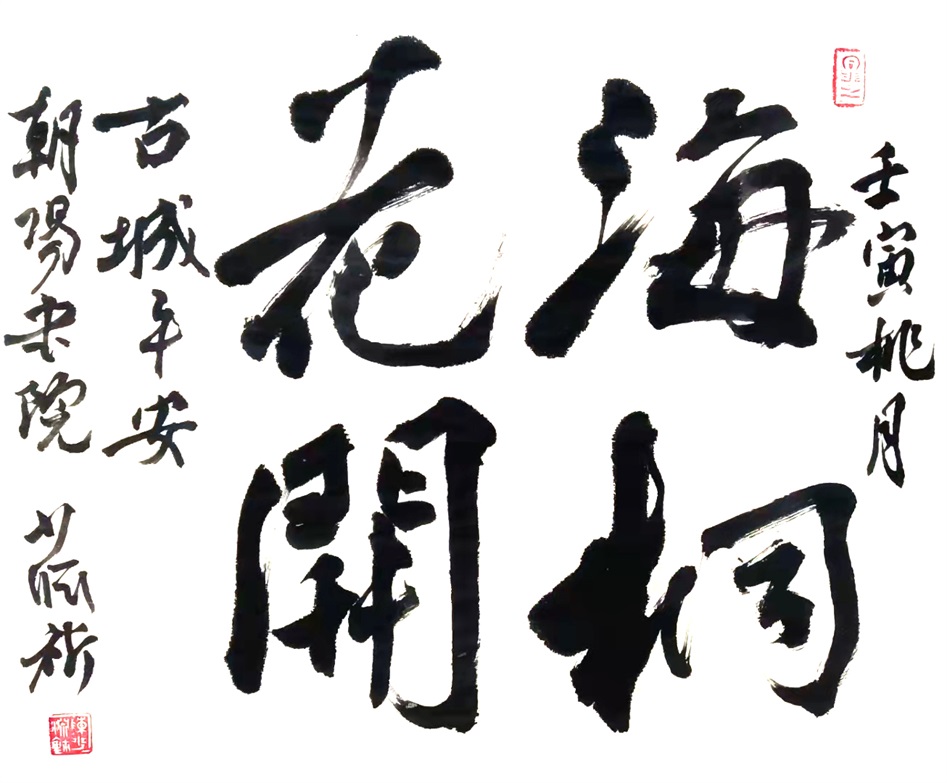 壬寅桃月
海桐
花開
古城午安
朝陽書院